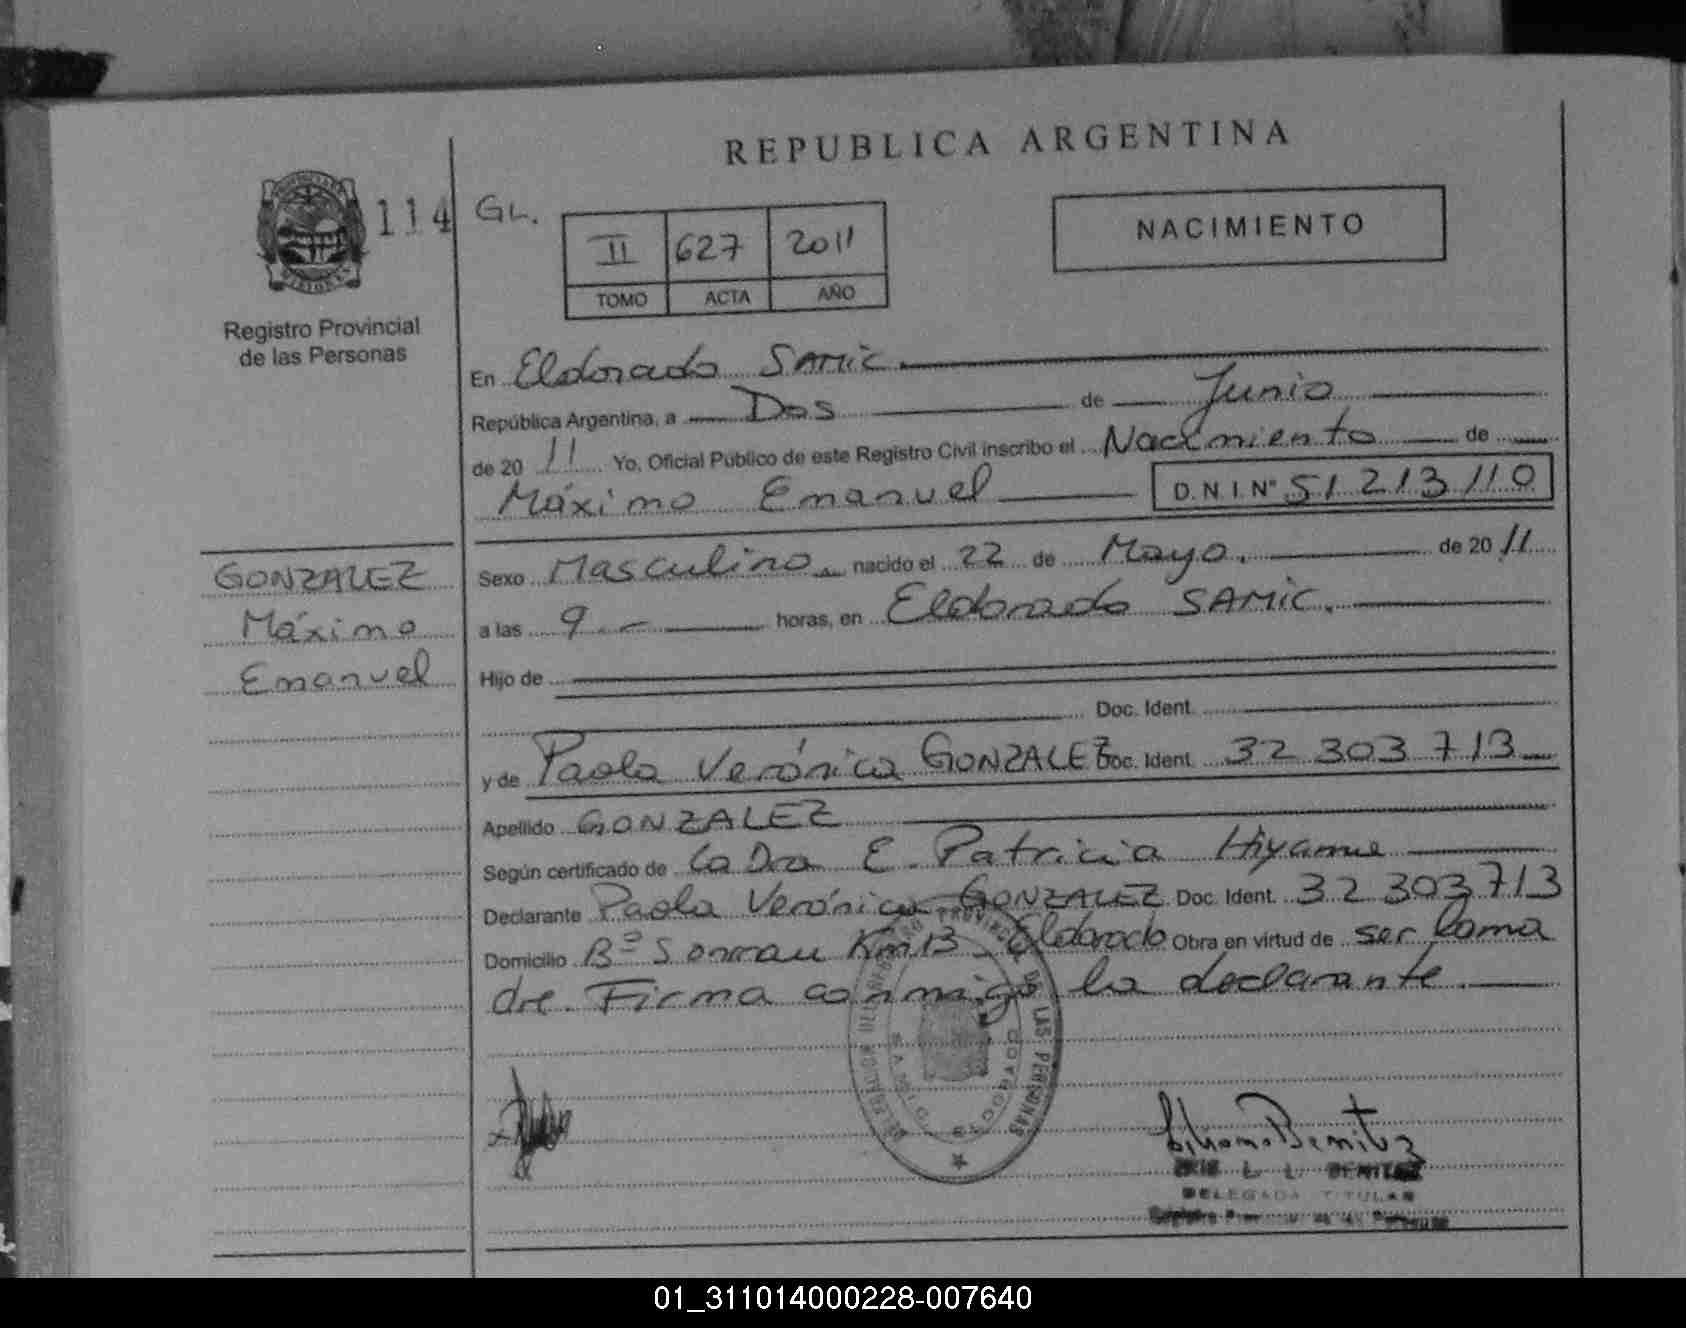 REPUBLICA ARGENTINA
114 GL.
II 627 2011
TOMO ACTA AÑO
NACIMIENTO
Registro Provincial
de las Personas
En Eldorado SAMIC.
República Argentina, a Dos de Junio
de 20 11 Yo, Oficial Público de este Registro Civil inscribo el Nacimiento de
Máximo Emanuel D.N.I.Nº 51 213 110
GONZALEZ
Máximo
Emanuel
Sexo Masculino nacido el 22 de Mayo. de 20 11
a las 9.- horas, en Eldorado SAMIC.
Hijo de
Doc. Ident.
y de Paola Verónica GONZALEZ Doc. Ident. 32 303 713
Apellido GONZALEZ
Según certificado de la Dra E. Patricia
Declarante Paola Verónica GONZALEZ Doc. Ident. 32 303 713
Domicilio Bº Km 13 Eldorado Obra en virtud de ser la ma
dre. Firma conmigo la declarante.
DE LAS PERSONAS
Benitez
L. BENITEZ
DELEGADA TITULAR
01_311014000228-007640